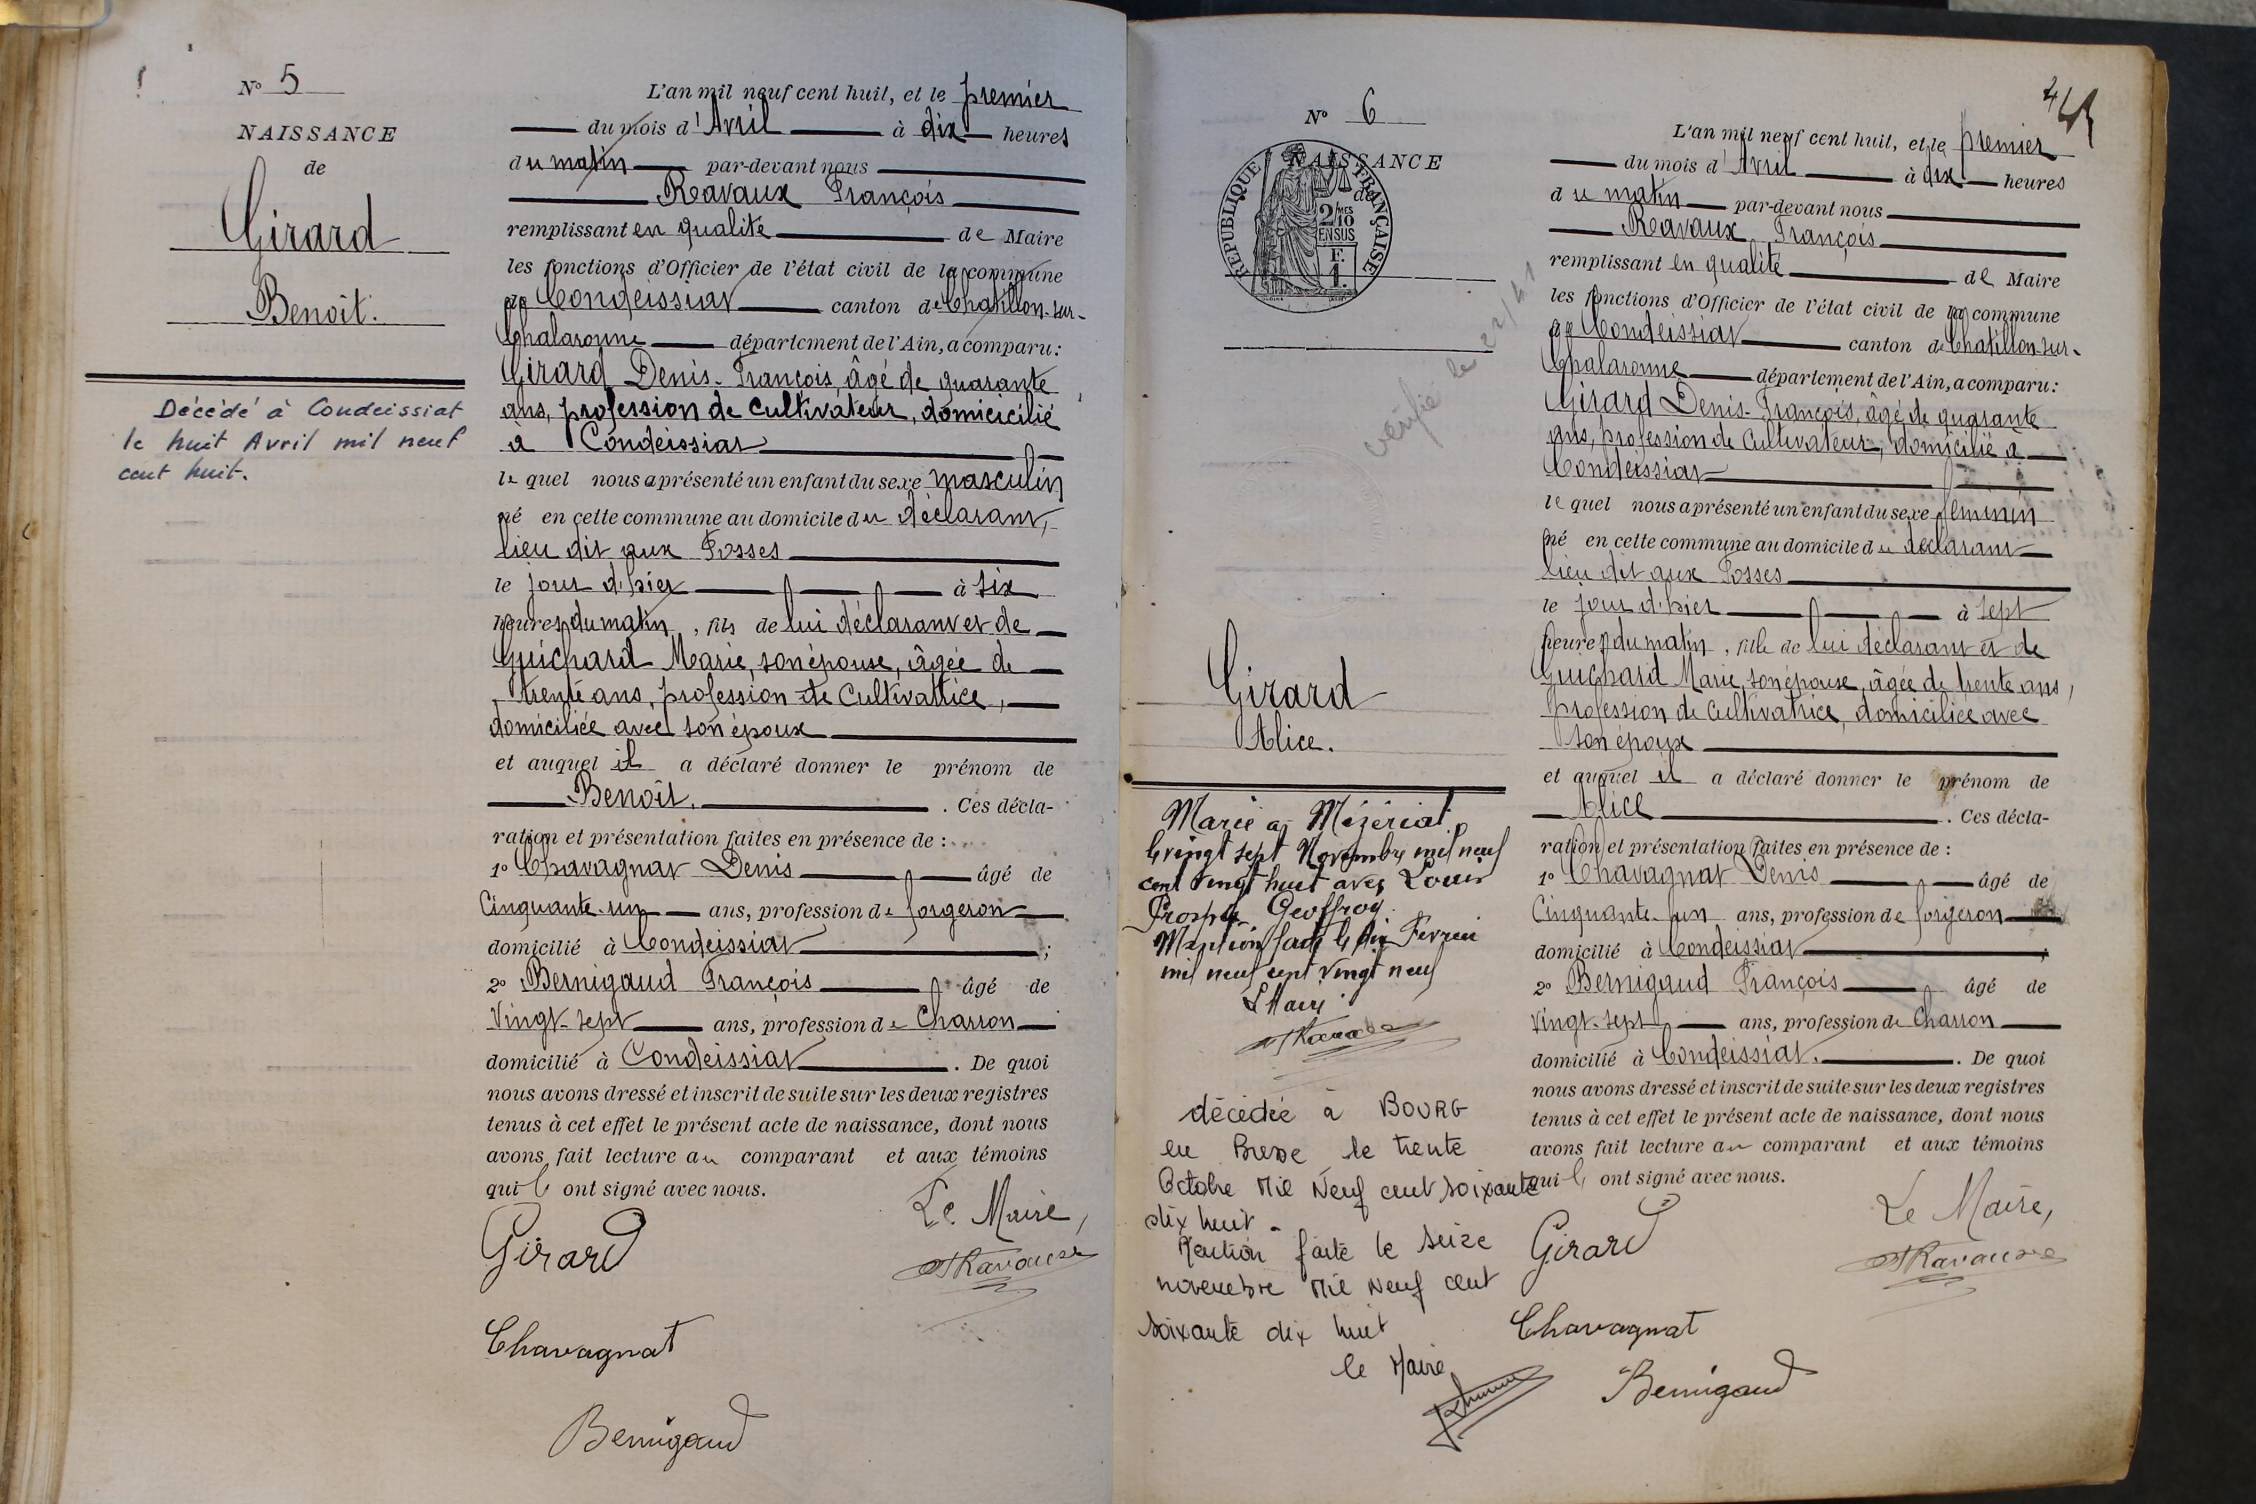 N° 5
NAISSANCE
de
Girard
Benoît.
Décédé à Condeissiat
le huit Avril mil neuf
cent huit.
L'an mil neuf cent huit, et le premier
du mois d'Avril à dix heures
du matin par-devant nous
Ravaux François
remplissant en qualité de Maire
les fonctions d'Officier de l'état civil de la commune
de Condeissiat canton de Chatillon-sur-
Chalaronne département de l'Ain, a comparu:
Girard Denis-François, âgé de quarante
ans, profession de cultivateur, domicicilié
à Condeissiat
lequel nous a présenté un enfant du sexe masculin
né en cette commune au domicile du déclarant,
lieu dit aux Fosses
le jour d'hier à six
heures du matin, fils de lui déclarant et de
Guichard Marie, son épouse, âgée de
trente ans, profession de Cultivatrice,
domiciliée avec son époux
et auquel il a déclaré donner le prénom de
Benoît. . Ces décla-
ration et présentation faites en présence de :
1° Chavagnat Denis âgé de
Cinquante-un ans, profession de forgeron
domicilié à Condeissiat ;
2° Bernigaud François âgé de
Vingt-sept ans, profession de Charron
domicilié à Condeissiat . De quoi
nous avons dressé et inscrit de suite sur les deux registres
tenus à cet effet le présent acte de naissance, dont nous
avons fait lecture au comparant et aux témoins
qui ont signé avec nous.
Le Maire,
Girard
Ravaux
Chavagnat
Bernigaud
N° 6
NAISSANCE
de
REPUBLIQUE FRANÇAISE
2/MES
10
EN SUS
F.
1.
vérifié le 22/41
Girard
Alice.
Marié à Mézériat
le vingt sept Novembre mil neuf
cent vingt huit avec Louis
Prosper Geoffroy
Mention faite le six Fevrier
mil neuf cent vingt neuf
Le Maire
Ravaux
décédée à BOURG
en Bresse le trente
Octobre Mil Neuf cent soixante
dix huit -
Mention faite le seize
novembre Mil Neuf cent
soixante dix huit
le Maire
L'an mil neuf cent huit, et le premier
du mois d'Avril à dix heures
du matin par-devant nous
Ravaux François
remplissant en qualité de Maire
les fonctions d'Officier de l'état civil de la commune
de Condeissiat canton de Chatillon-sur-
Chalaronne département de l'Ain, a comparu:
Girard Denis-François, âgé de quarante
ans, profession de Cultivateur, domicilié à
Condeissiat
lequel nous a présenté un enfant du sexe féminin
né en cette commune au domicile du déclarant
lieu dit aux Fosses
le jour d'hier à sept
heures du matin, fille de lui déclarant et de
Guichard Marie, son épouse, âgée de trente ans,
profession de Cultivatrice, domiciliée avec
son époux
et auquel il a déclaré donner le prénom de
Alice . Ces décla-
ration et présentation faites en présence de :
1° Chavagnat Denis âgé de
Cinquante-un ans, profession de forgeron
domicilié à Condeissiat ;
2° Bernigaud François âgé de
Vingt-sept ans, profession de Charron
domicilié à Condeissiat. . De quoi
nous avons dressé et inscrit de suite sur les deux registres
tenus à cet effet le présent acte de naissance, dont nous
avons fait lecture au comparant et aux témoins
qui ont signé avec nous.
Le Maire,
Girard
Ravaux
Chavagnat
Bernigaud